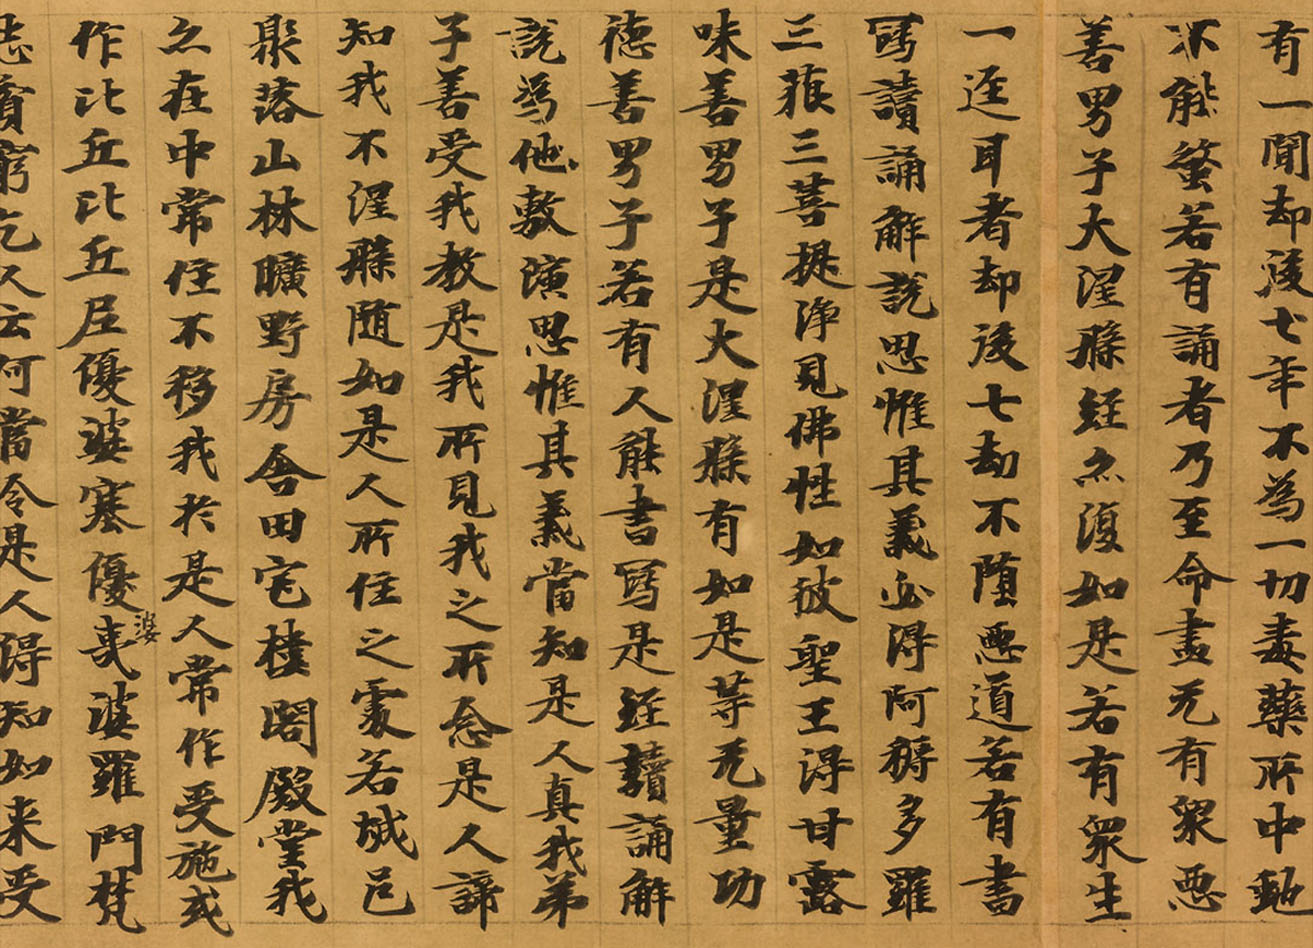 有一聞却後七年不為一切毒藥所中虵
不能螫若有誦者乃至命盡无有衆惡
善男子大涅槃經亦復如是若有衆生
一逕耳者却後七劫不墮惡道若有書
寫讀誦解說思惟其義必得阿耨多羅
三藐三菩提淨見佛性如彼聖王得甘露
味善男子是大涅槃有如是等无量功
德善男子若有人能書寫是經讀誦解
說為他敷演思惟其義當知是人真我弟
子善受我教是我所見我之所念是人諦
知我不涅槃随如是人所住之處若城邑
聚落山林曠野房舍田宅樓閣殿堂我
亦在中常住不移我於是人常作受施或
作比丘比丘尼優婆塞優婆夷婆羅門梵
志貧窮乞人云何當令是人得知如来受